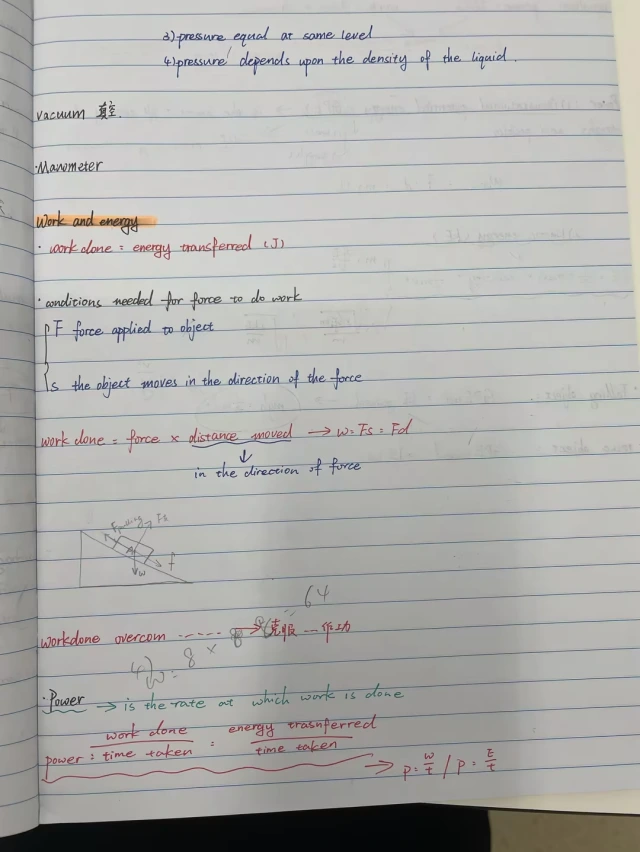 3) pressure equal at same level
4) pressure depends upon the density of the liquid.
vacuum 真空.
·Manometer
Work and energy
· work done = energy transferred (J)
· conditions needed for force to do work
F force applied to object
s the object moves in the direction of the force
work done = force × distance moved → W = Fs = Fd
↓
in the direction of force
Fs
f
w
64
workdone overcom ----- → 克服 — 作功
4) W = 8 × 8
·Power → is the rate at which work is done
power = work done / time taken = energy trasnferred / time taken
→ P = W/t / P = E/t